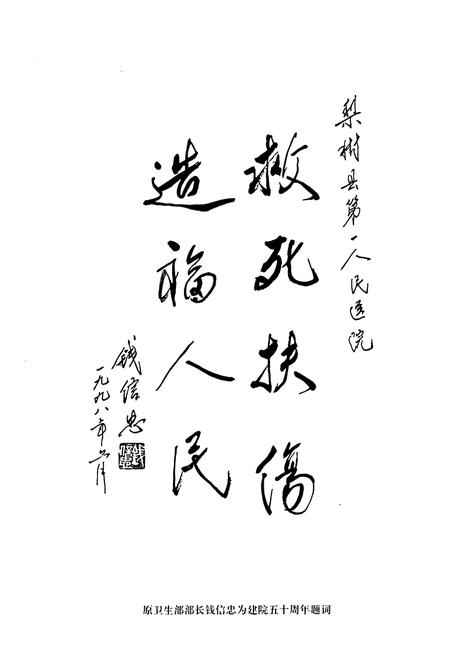 梨树县第一人民医院
救死扶傷
造福人民
钱信忠
一九九八年六月
原卫生部部长钱信忠为建院五十周年题词